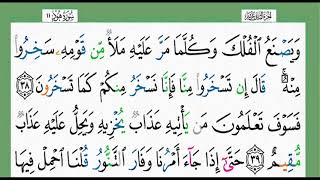 سُورَةُ هُودٍ ١١
وَيَصْنَعُ الْفُلْكَ وَكُلَّمَا مَرَّ عَلَيْهِ مَلَأٌ مِّن قَوْمِهِ سَخِرُوا
مِنْهُ ۚ قَالَ إِن تَسْخَرُوا مِنَّا فَإِنَّا نَسْخَرُ مِنكُمْ كَمَا تَسْخَرُونَ ٣٨
فَسَوْفَ تَعْلَمُونَ مَن يَأْتِيهِ عَذَابٌ يُخْزِيهِ وَيَحِلُّ عَلَيْهِ عَذَابٌ
مُّقِيمٌ ٣٩ حَتَّىٰ إِذَا جَاءَ أَمْرُنَا وَفَارَ التَّنُّورُ قُلْنَا احْمِلْ فِيهَا